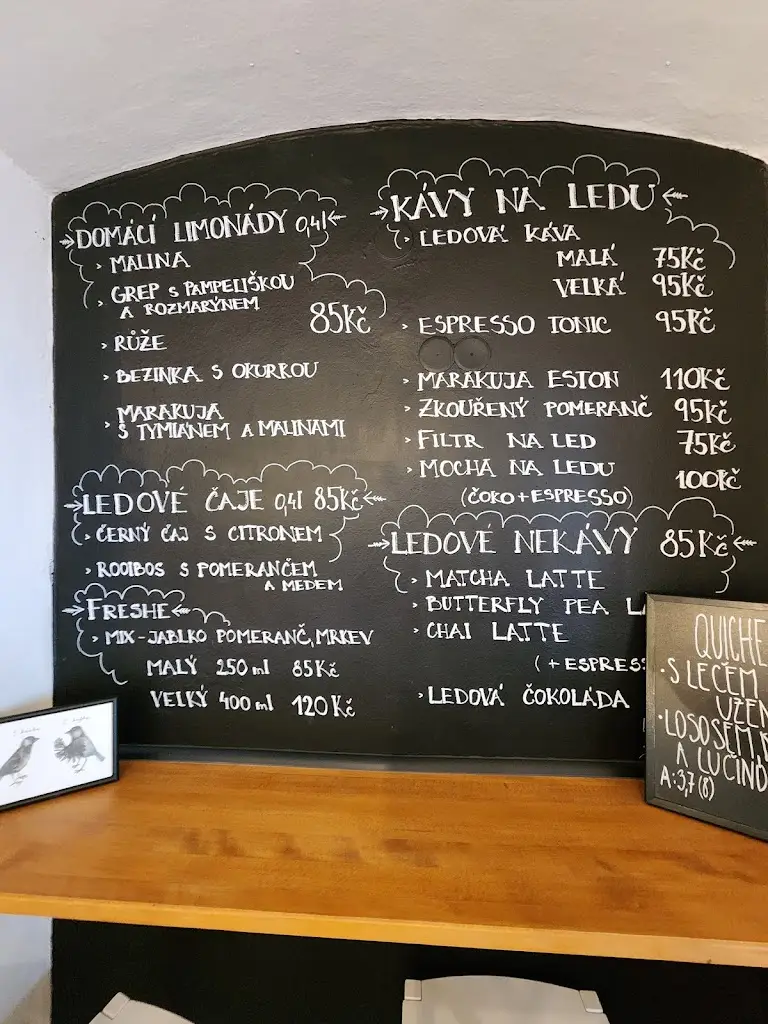 DOMÁCÍ LIMONÁDY 0,4l
› MALINA
› GREP S PAMPELIŠKOU
A ROZMARÝNEM
85Kč
› RŮŽE
› BEZINKA S OKURKOU
› MARAKUJA
S TYMIÁNEM A MALINAMI
LEDOVÉ ČAJE 0,4l 85Kč
› ČERNÝ ČAJ S CITRONEM
› ROOIBOS S POMERANČEM
A MEDEM
FRESHE
› MIX-JABLKO POMERANČ, MRKEV
MALÝ 250 ml 85Kč
VELKÝ 400 ml 120Kč
KÁVY NA LEDU
› LEDOVÁ KÁVA
MALÁ 75Kč
VELKÁ 95Kč
› ESPRESSO TONIC 95Kč
› MARAKUJA ESTON 110Kč
› ZKOUŘENÝ POMERANČ 95Kč
› FILTR NA LED 75Kč
› MOCHA NA LEDU 100Kč
(ČOKO+ESPRESSO)
LEDOVÉ NEKÁVY 85Kč
› MATCHA LATTE
› BUTTERFLY PEA LA
› CHAI LATTE
(+ESPRES
› LEDOVÁ ČOKOLÁDA
QUICHE
·S LEČEM
UZEN
·LOSOSEM,
A LUČINO
A:3,7(8)